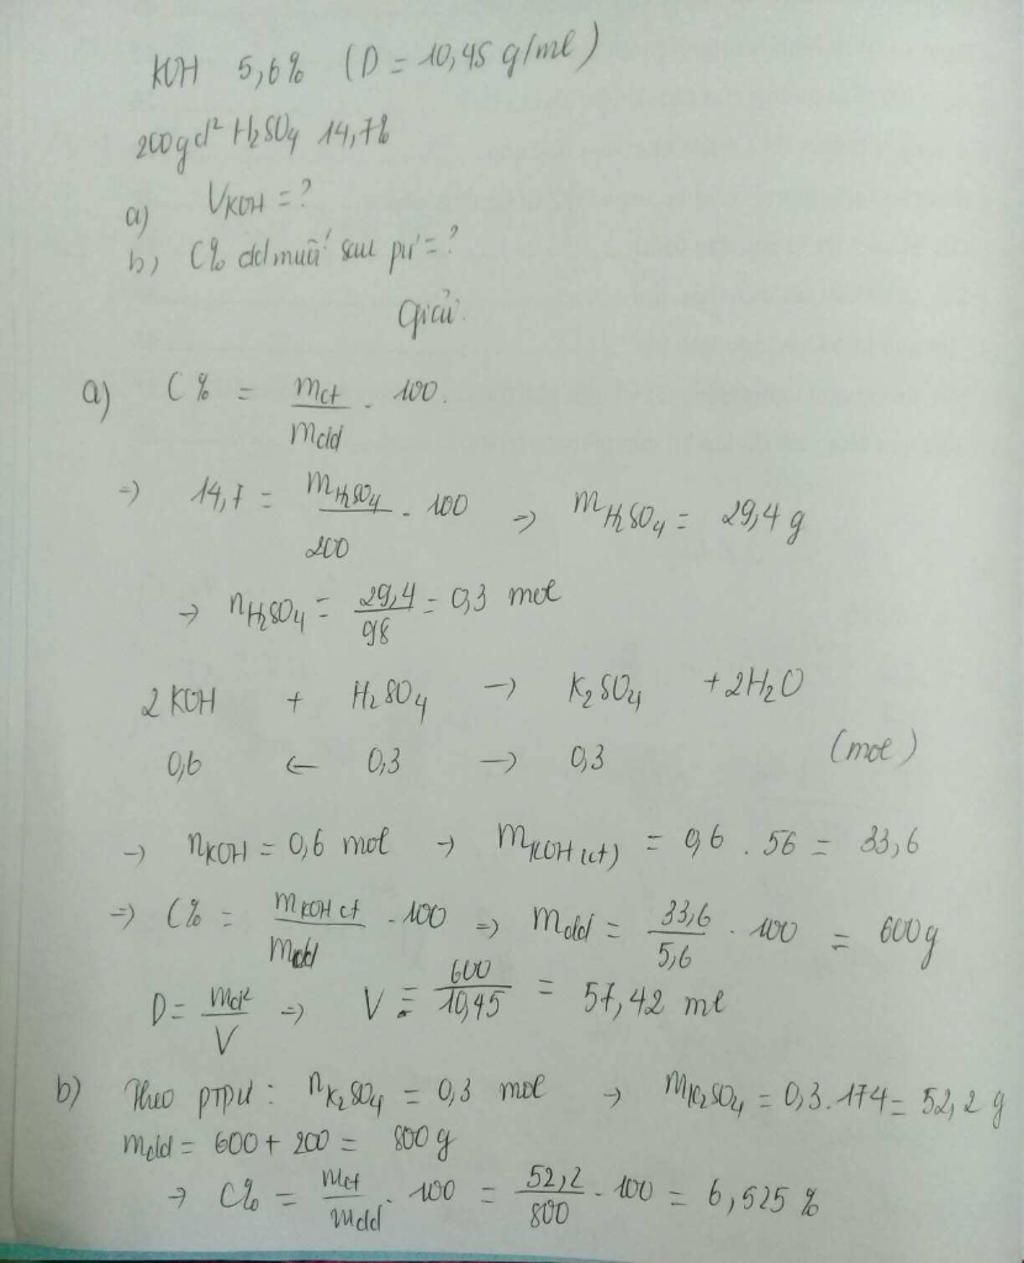 KOH 5,6% (D = 10,45 g/ml)
200g d² H₂SO₄ 14,7%
a) V_KOH = ?
b) C% dd muối sau pứ = ?
Giải
a) C% = m_ct / m_dd . 100.
=> 14,7 = m_H₂SO₄ / 200 . 100 => m_H₂SO₄ = 29,4 g
-> n_H₂SO₄ = 29,4 / 98 = 0,3 mol
2 KOH + H₂SO₄ -> K₂SO₄ + 2H₂O
0,6 <- 0,3 -> 0,3 (mol)
-> n_KOH = 0,6 mol -> m_KOH (ct) = 0,6 . 56 = 33,6
=> C% = m_KOH ct / m_dd . 100 => m_dd = 33,6 / 5,6 . 100 = 600g
D = m_d² / V => V = 600 / 10,45 = 57,42 ml
b) Theo ptpứ : n_K₂SO₄ = 0,3 mol -> m_K₂SO₄ = 0,3.174 = 52,2 g
m_dd = 600 + 200 = 800 g
-> C% = m_ct / m_dd . 100 = 52,2 / 800 . 100 = 6,525 %